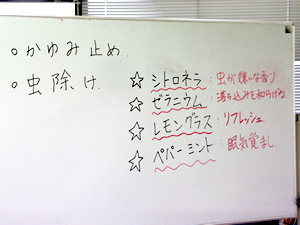 ○かゆみ止め.
○虫除け.
☆シトロネラ：虫が嫌いな香り
☆ゼラニウム：落ち込みを和らげる.
☆レモングラス：リフレッシュ.
☆ペパーミント：眠気覚まし.